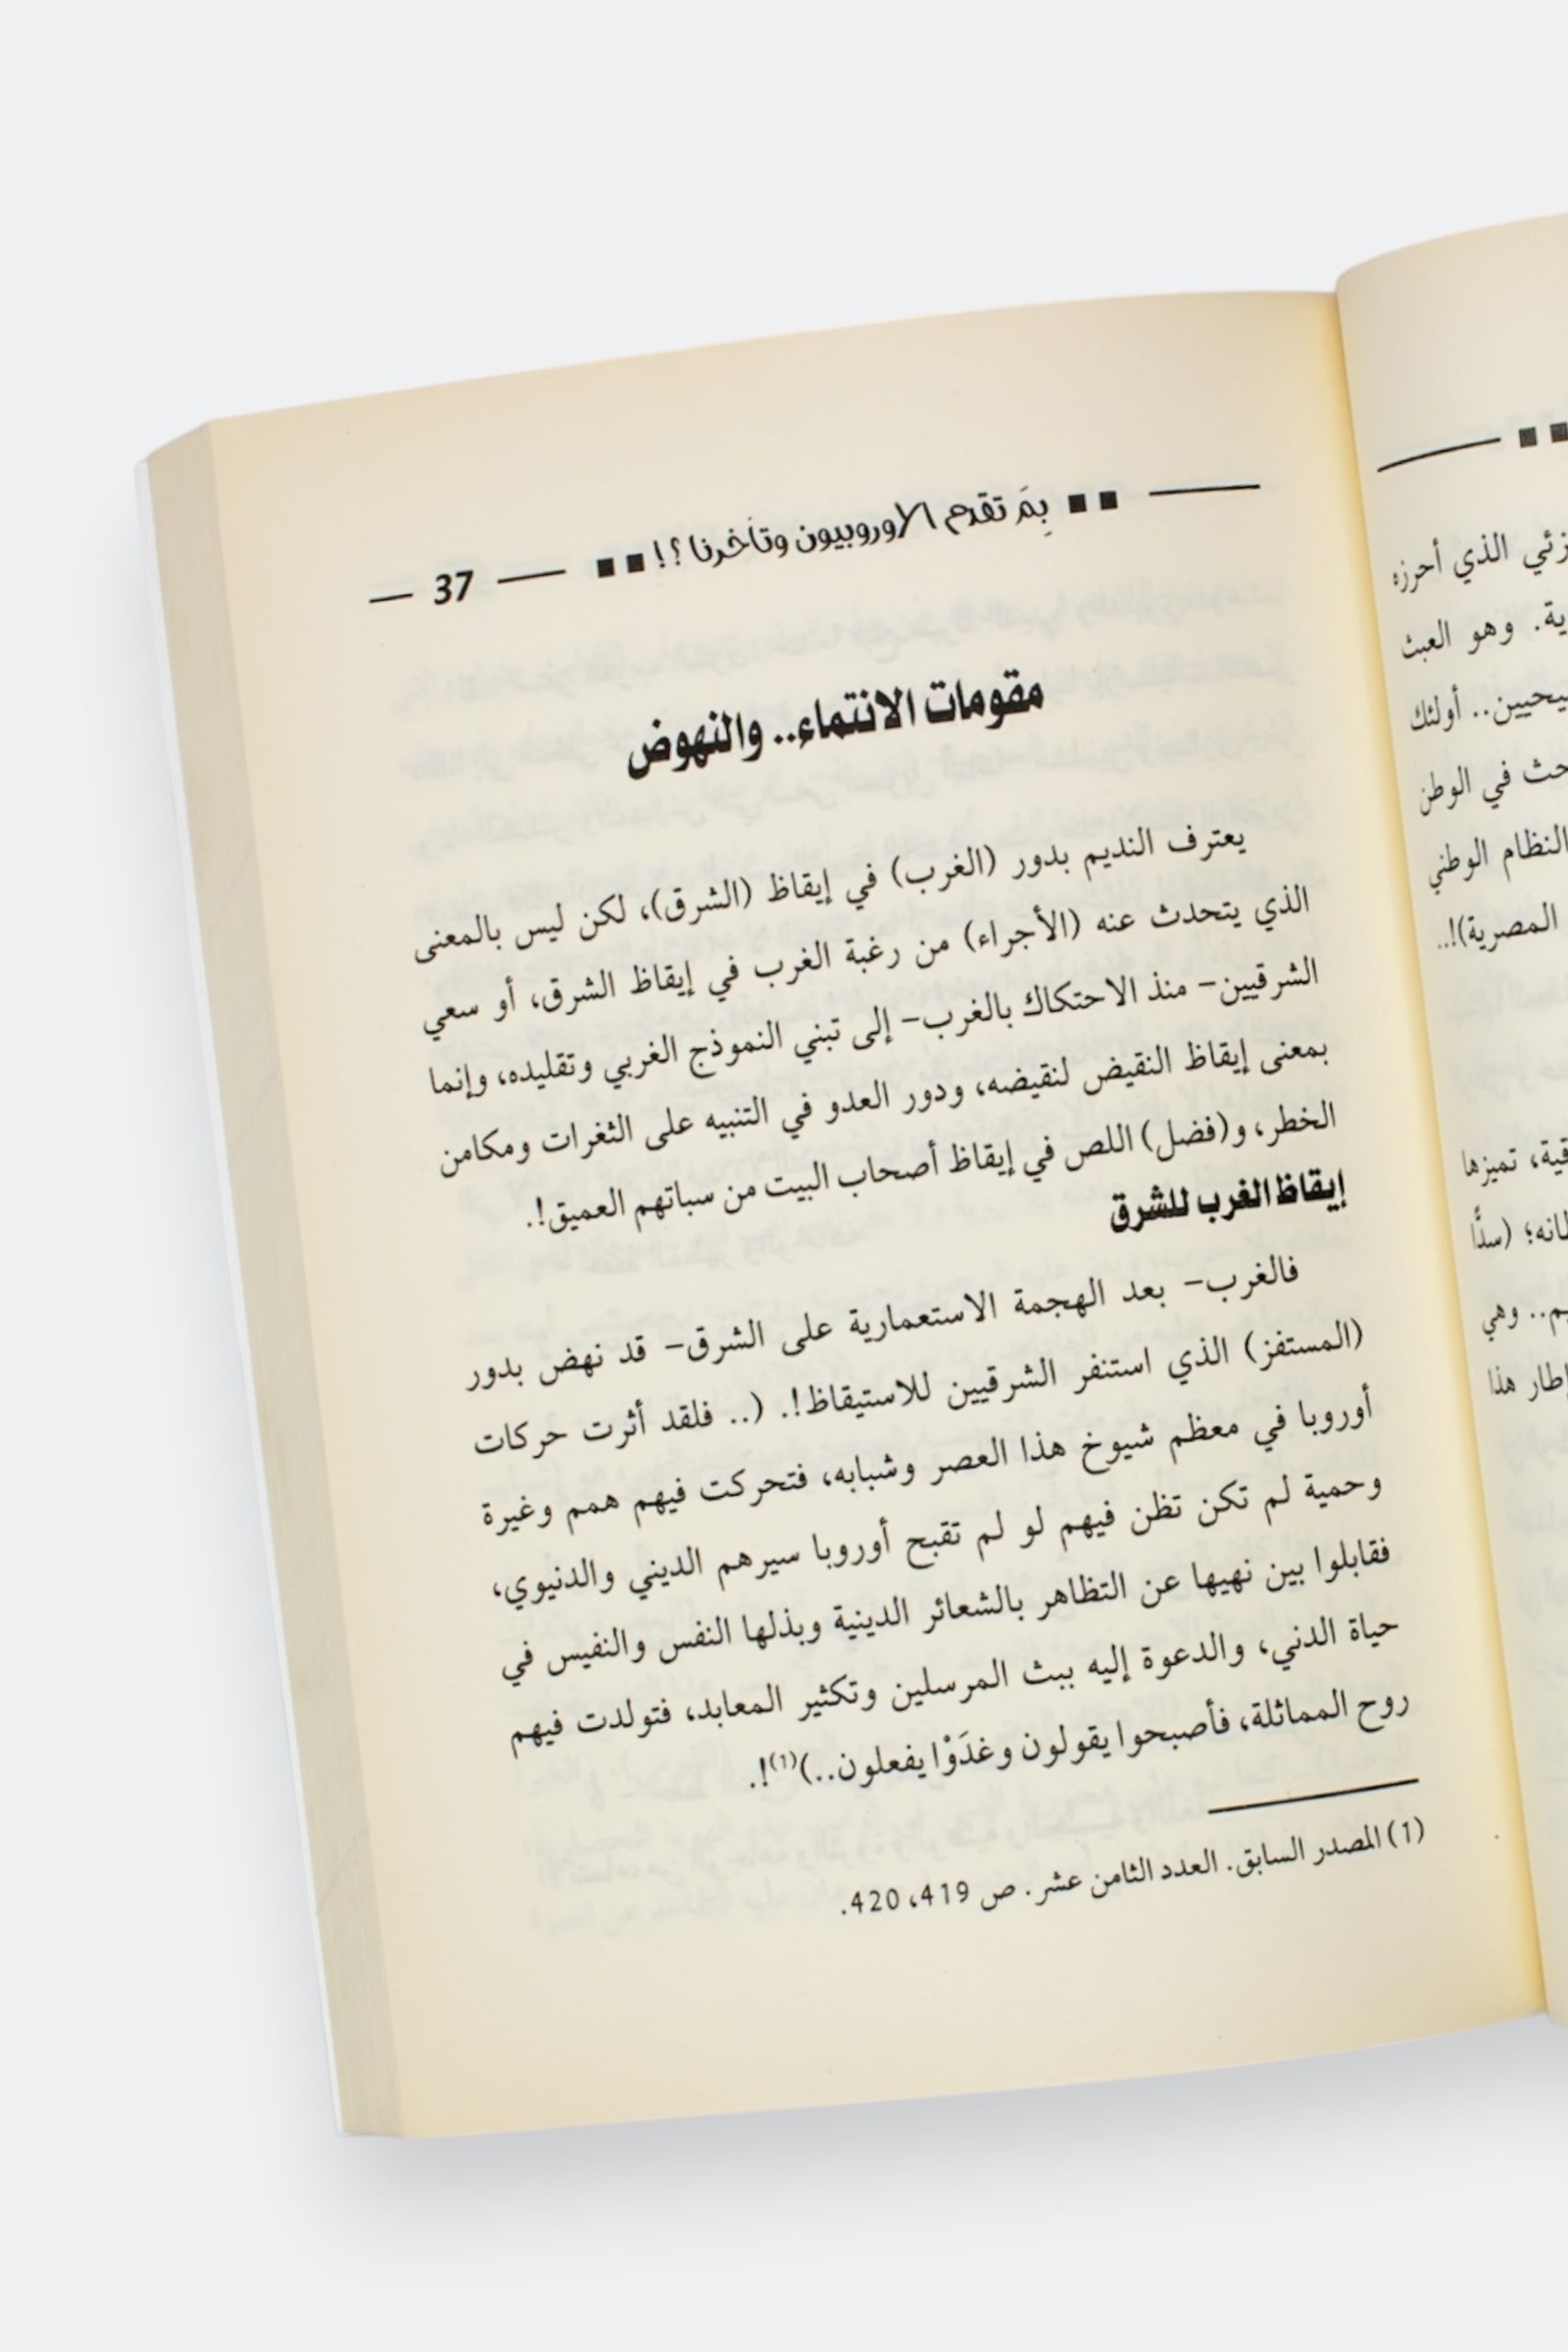 بِمَ تقدم الأوروبيون وتأخرنا؟!
37
مقومات الانتماء.. والنهوض
يعترف النديم بدور (الغرب) في إيقاظ (الشرق)، لكن ليس بالمعنى
الذي يتحدث عنه (الأجراء) من رغبة الغرب في إيقاظ الشرق، أو سعي
الشرقيين- منذ الاحتكاك بالغرب- إلى تبني النموذج الغربي وتقليده، وإنما
بمعنى إيقاظ النقيض لنقيضه، ودور العدو في التنبيه على الثغرات ومكامن
الخطر، و(فضل) اللص في إيقاظ أصحاب البيت من سباتهم العميق!.
إيقاظ الغرب للشرق
فالغرب- بعد الهجمة الاستعمارية على الشرق- قد نهض بدور
(المستفز) الذي استنفر الشرقيين للاستيقاظ!. (.. فلقد أثرت حركات
أوروبا في معظم شيوخ هذا العصر وشبابه، فتحركت فيهم همم وغيرة
وحمية لم تكن تظن فيهم لو لم تقبح أوروبا سيرهم الديني والدنيوي،
فقابلوا بين نهيها عن التظاهر بالشعائر الدينية وبذلها النفس والنفيس في
حياة الدني، والدعوة إليه ببث المرسلين وتكثير المعابد، فتولدت فيهم
روح المماثلة، فأصبحوا يقولون وغدَوْا يفعلون..)(1)!.
(1) المصدر السابق. العدد الثامن عشر. ص 419، 420.
الذي أحرزه
وهو العبث
أولئك
في الوطن
النظام الوطني
المصرية)!..
تميزها
(سدًّا
وهي
هذا